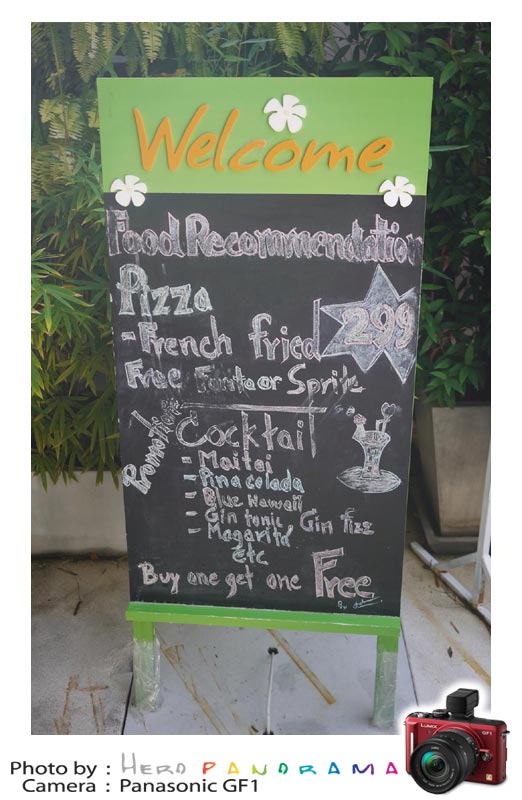 Welcome
Food Recommendation
Pizza
- French fried
299
Free Fanta or Sprite
Promotion
Cocktail
- Maitai
- Pina colada
- Blue Hawaii
- Gin tonic Gin fizz
- Magarita
etc
Buy one get one Free
By
Photo by : HERO PANORAMA
Camera : Panasonic GF1
LUMIX
GF1